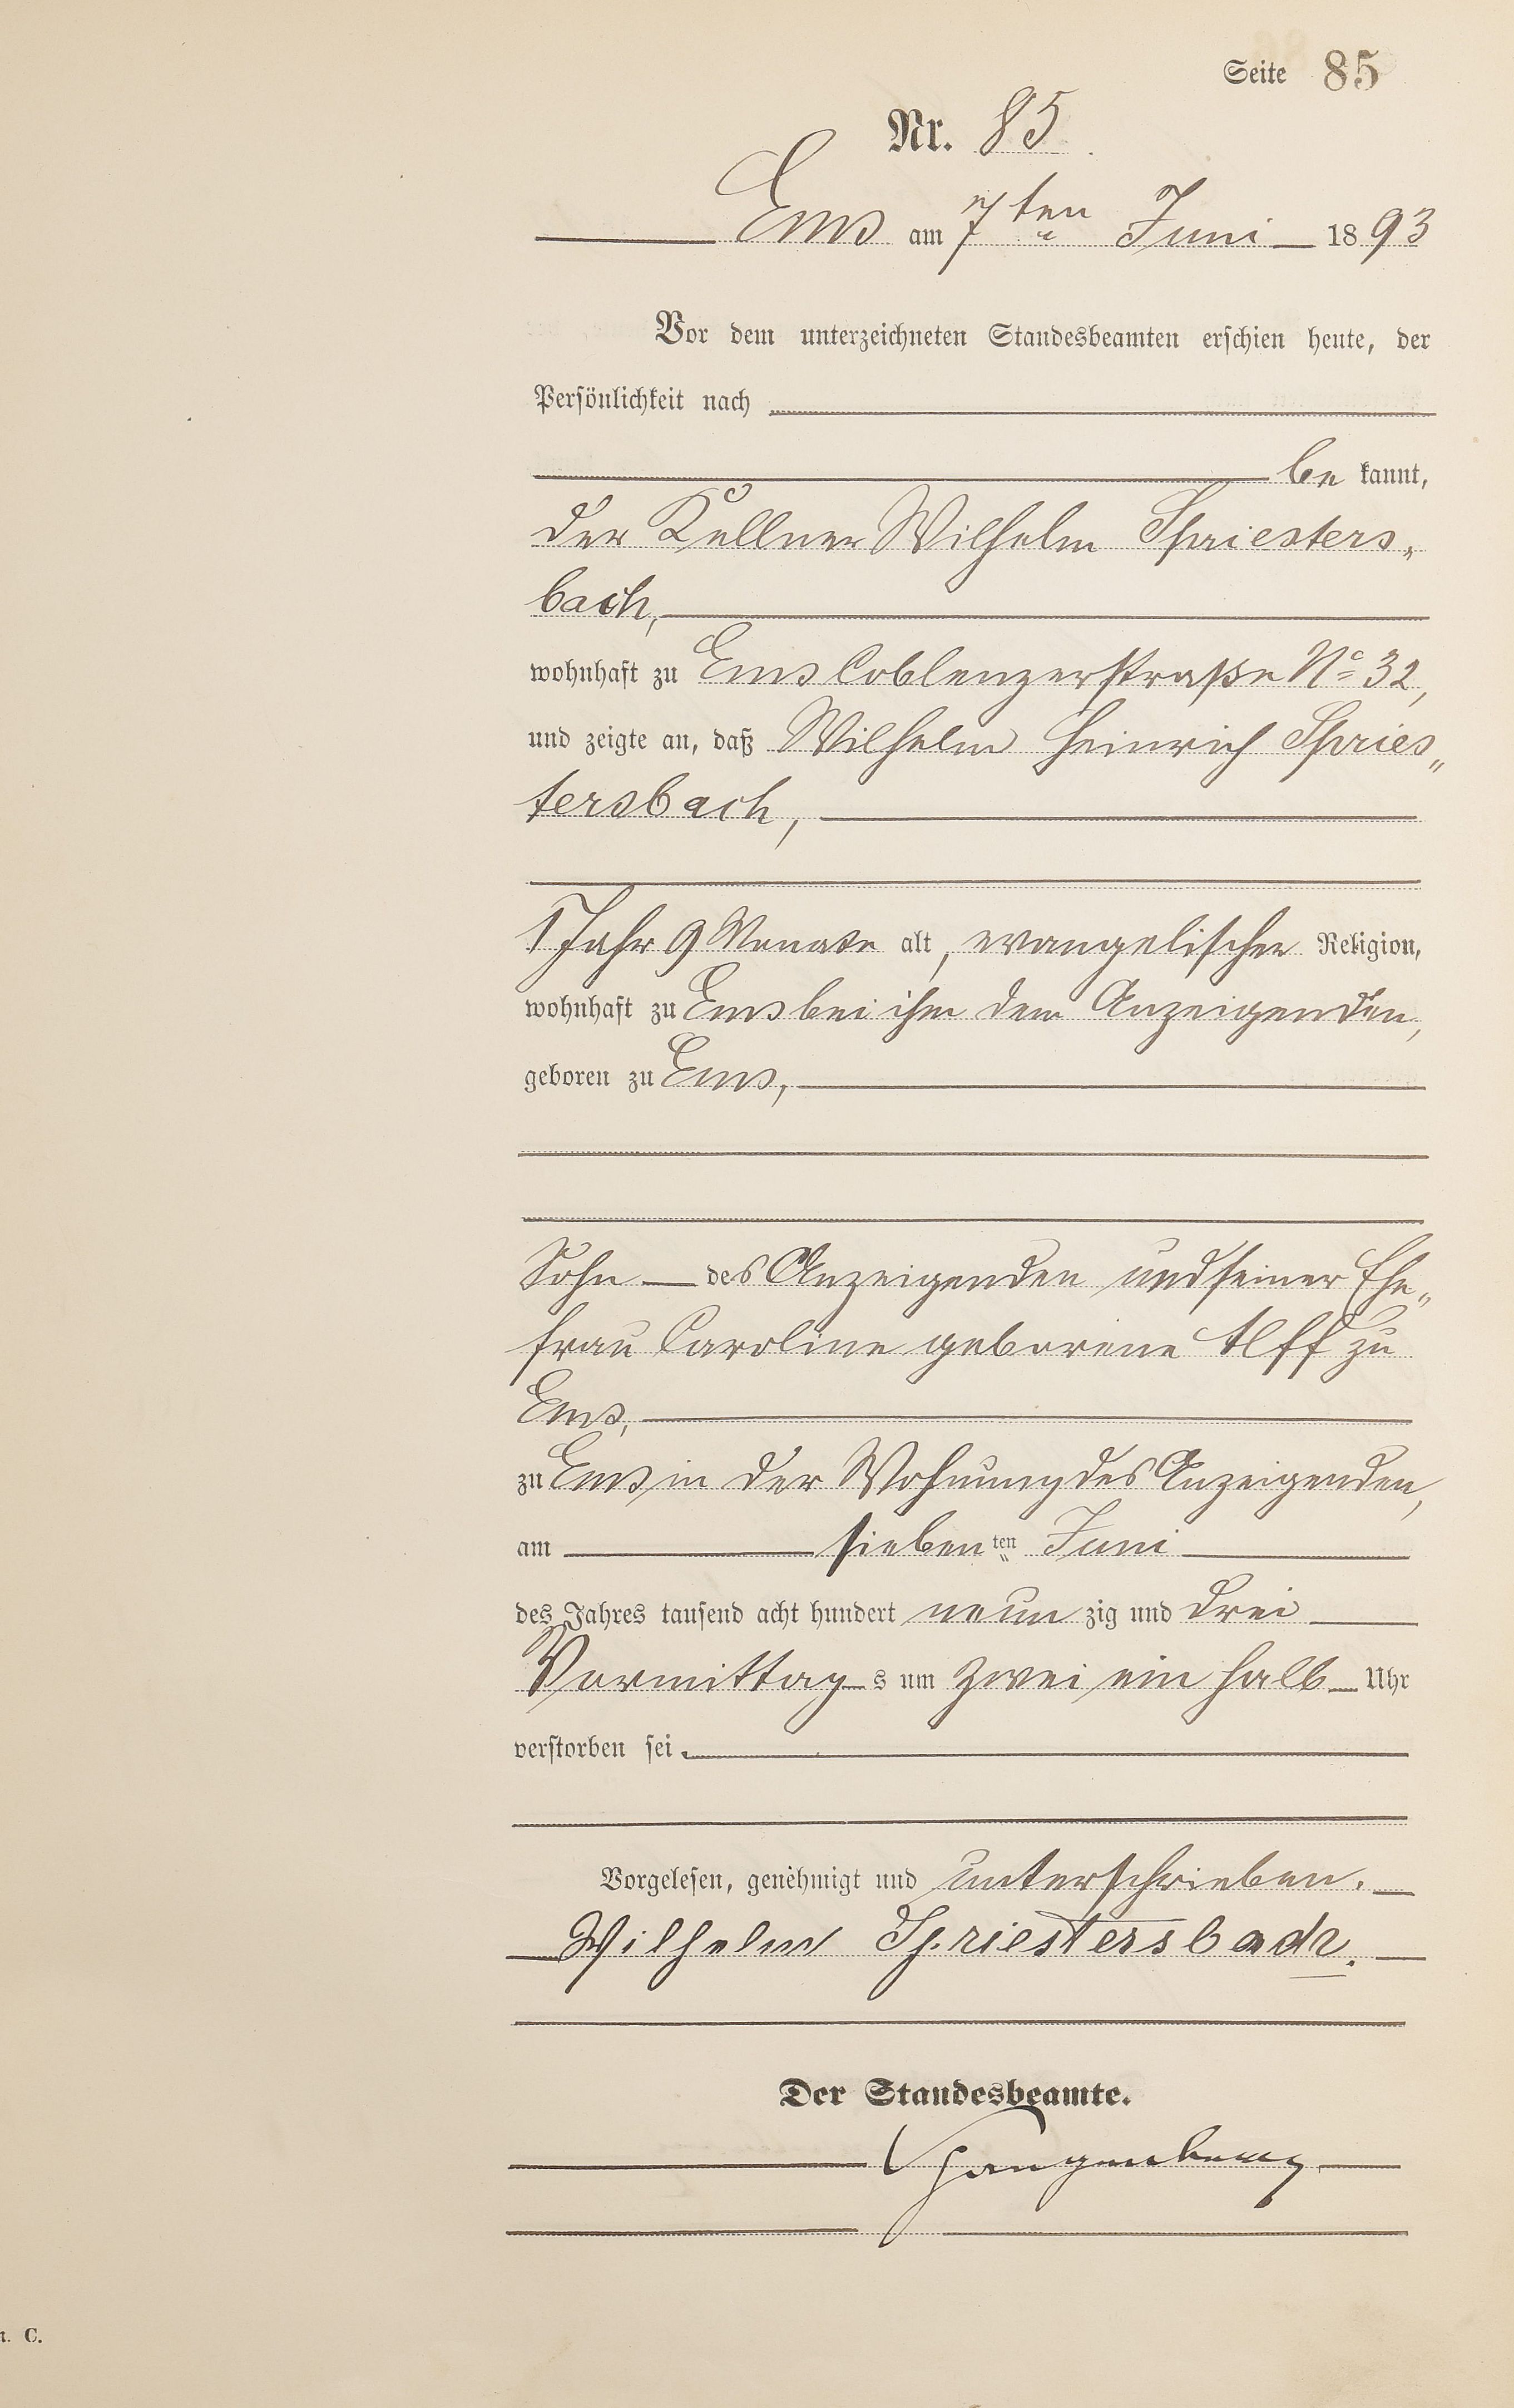 Seite 85
Nr. 85.
Ems am 7ten Juni 1893
Vor dem unterzeichneten Standesbeamten erschien heute, der
Persönlichkeit nach
be kannt,
der Kellner Wilhelm Spriesters-
bach,
wohnhaft zu Ems Coblenzerstraße No 32,
und zeigte an, daß Wilhelm Heinrich Spries„
tersbach,
1 Jahr 9 Monate alt, evangelischer Religion,
wohnhaft zu Ems bei ihm dem Anzeigenden,
geboren zu Ems,
Sohn des Anzeigenden und seiner Ehe„
frau Caroline geborene Alff zu
Ems,
zu Ems in der Wohnung des Anzeigenden,
am siebenten Juni
des Jahres tausend acht hundert neun zig und drei
Vormittags um zwei ein halb Uhr
verstorben sei.
Vorgelesen, genehmigt und unterschrieben.
Wilhelm Spriestersbach.
Der Standesbeamte.
C.